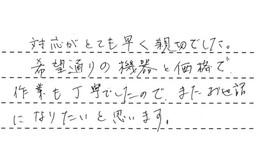 対応がとても早く親切でした。
希望通りの機器と価格で、
作業も丁寧でしたので、またお世話
になりたいと思います。